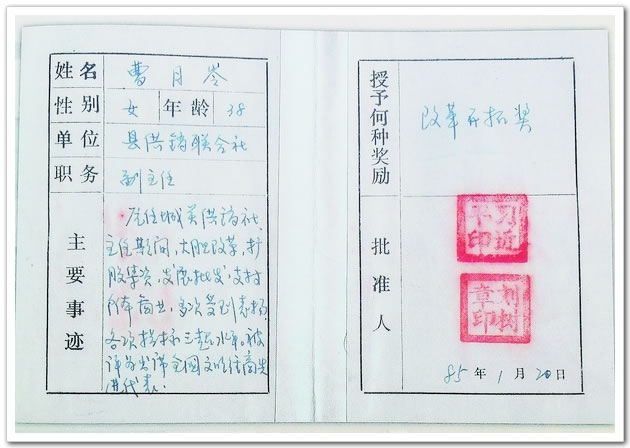 姓名 曹月岺
性别 女 年龄 38
单位 县供销联合社
职务 副主任
主要事迹
在任城关供销社
主任期间,大胆改革,扩
股集资,发展批发,支持
个体商业,多次受到表扬,
各项指标三超水平。被
评为出席全国文明经商先
进代表.
授予何种奖励
改革开拓奖
批准人
习近平印
刘树章印
85年1月20日